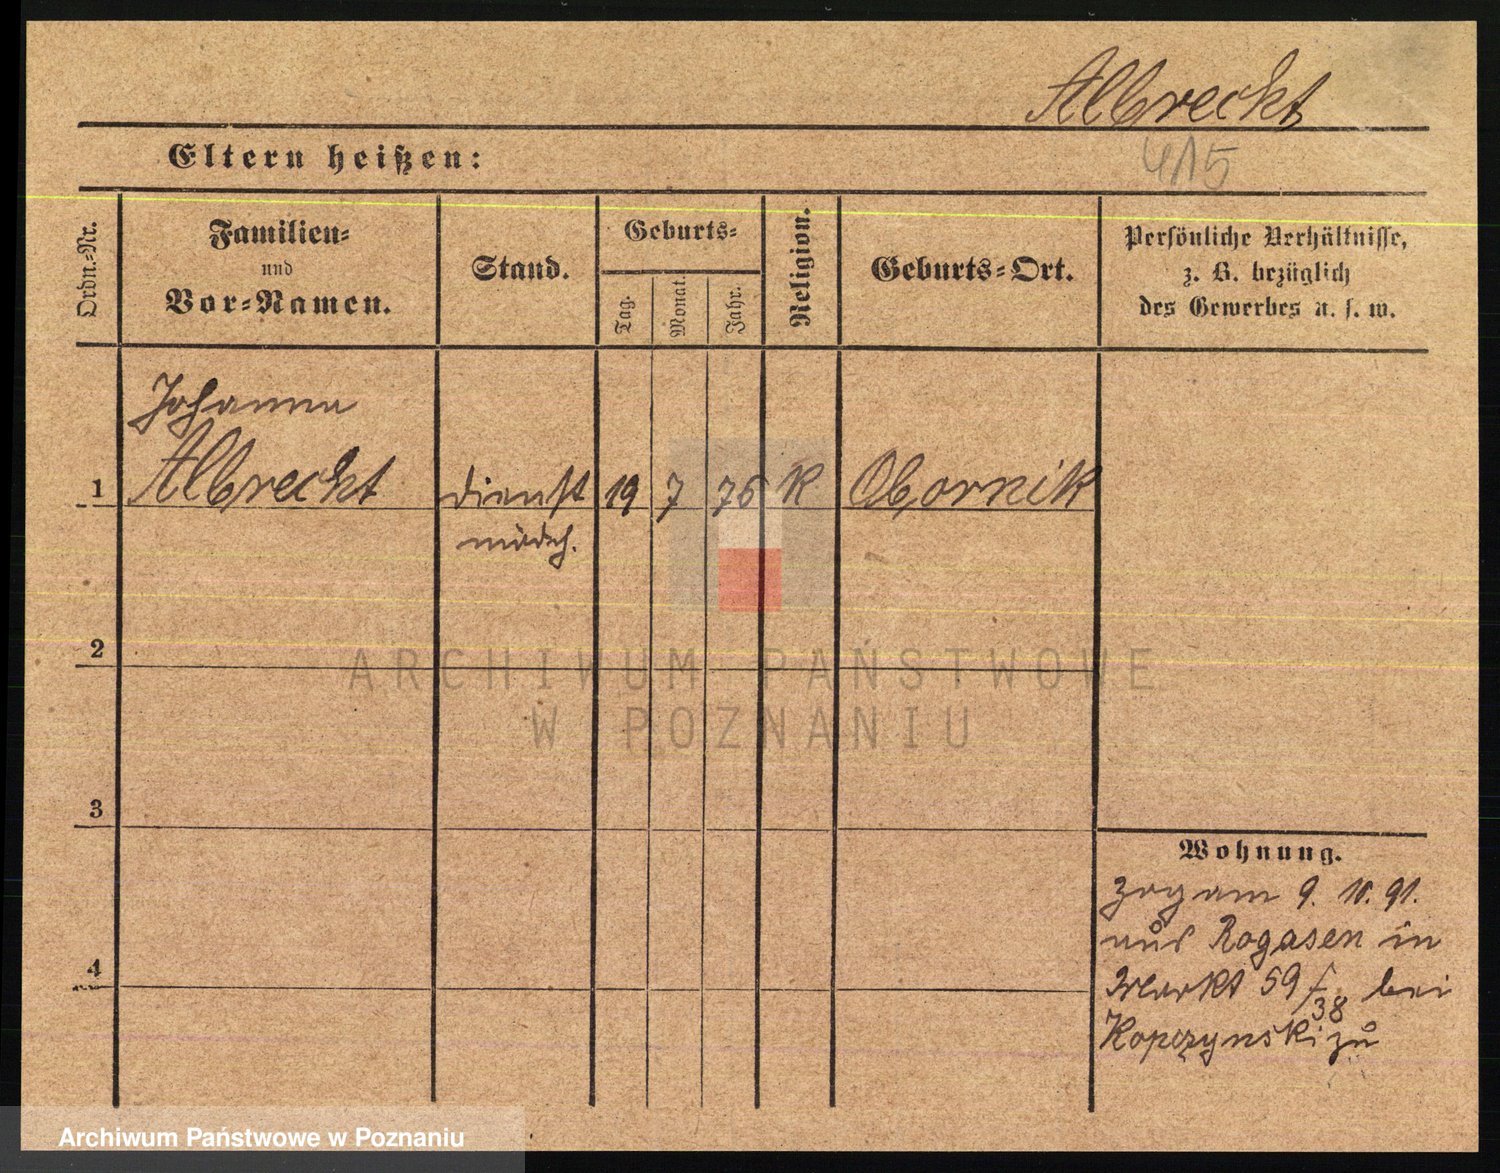 Albrecht
415
Eltern heißen:
Ordn.-Nr.
Familien-
und
Vor-Namen.
Stand.
Geburts-
Tag.
Monat.
Jahr.
Religion.
Geburts-Ort.
Persönliche Verhältnisse,
z. B. bezüglich
des Gewerbes u. s. w.
Johanna
1 Albrecht dienst 19 7 75 K Obornik
mädch.
2
ARCHIWUM PAŃSTWOWE
W POZNANIU
3
Wohnung.
zog am 9. 10. 91.
aus Rogasen in
4
Markt 59/38 bei
Kopczynski zu
Archiwum Państwowe w Poznaniu